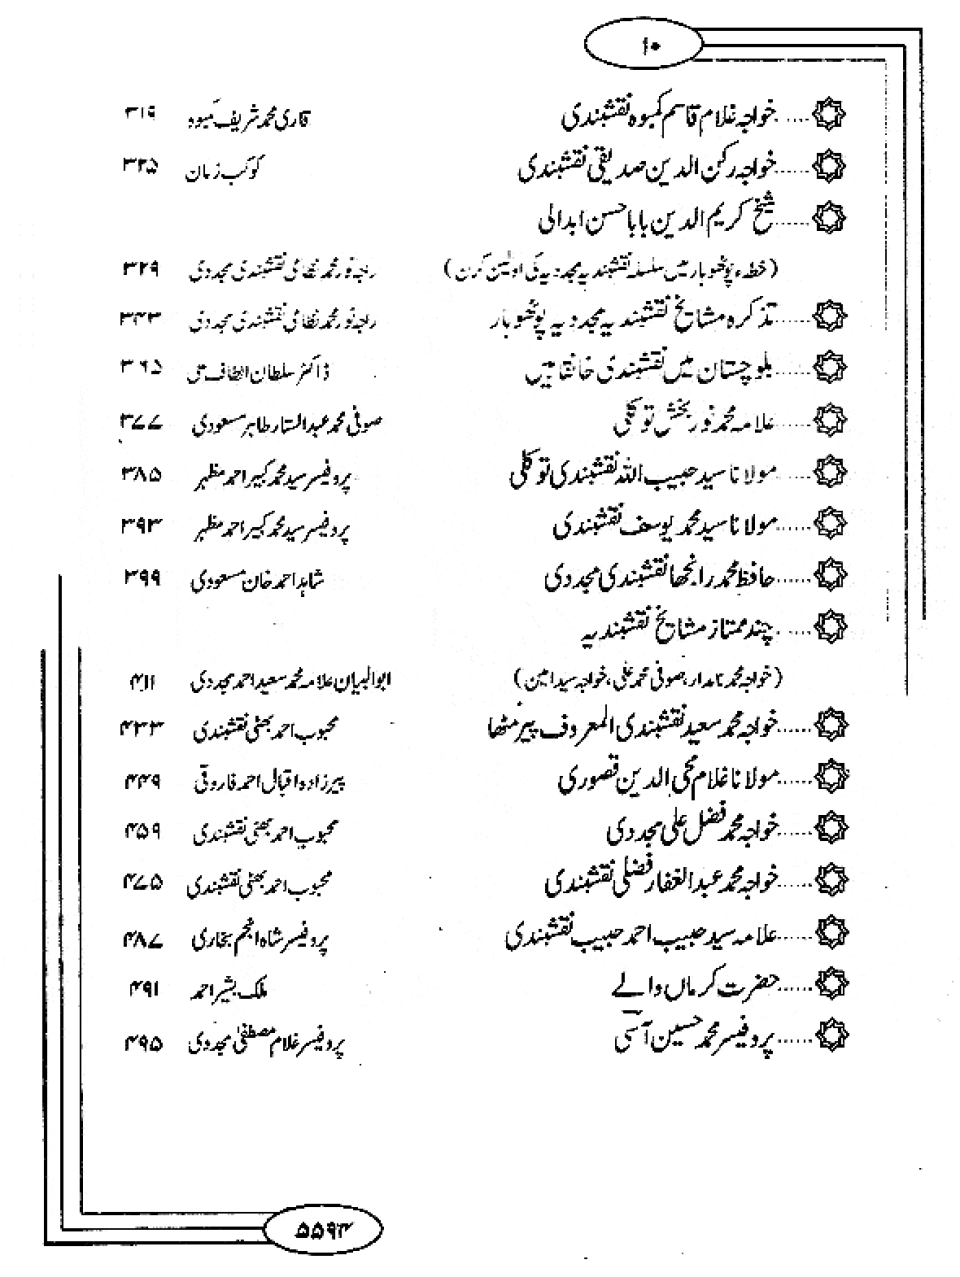 ۱۰
خواجہ غلام قاسم کمبوہ نقشبندی قاری محمد شریف کمبوہ ۳۱۹
خواجہ رکن الدین صدیقی نقشبندی کوکب زمان ۳۲۵
شیخ کریم الدین بابا حسن ابدالی
(خطہء پوٹھوہار میں سلسلہ نقشبندیہ مجددیہ کی اولین کرن) راجہ نور محمد نظامی نقشبندی مجددی ۳۲۹
تذکرہ مشایخ نقشبندیہ مجددیہ پوٹھوہار راجہ نور محمد نظامی نقشبندی مجددی ۳۴۳
بلوچستان میں نقشبندی خانقاہیں ڈاکٹر سلطان الطاف علی ۳۶۵
علامہ محمد نور بخش توکلی صوفی محمد عبدالستار طاہر مسعودی ۳۷۷
مولانا سید حبیب اللہ نقشبندی توکلی پروفیسر سید محمد کبیر احمد مظہر ۳۸۵
مولانا سید محمد یوسف نقشبندی پروفیسر سید محمد کبیر احمد مظہر ۳۹۳
حافظ محمد رانجھا نقشبندی مجددی شاہد احمد خان مسعودی ۳۹۹
چند ممتاز مشایخ نقشبندیہ
(خواجہ محمد نامدار، صوفی محمد علی، خواجہ سید امین) ابوالبیان علامہ محمد سعید احمد مجددی ۴۱۱
خواجہ محمد سعید نقشبندی المعروف پیر مٹھا محبوب احمد بھٹی نقشبندی ۴۳۳
مولانا غلام محی الدین قصوری پیرزادہ اقبال احمد فاروقی ۴۴۹
خواجہ محمد فضل علی مجددی محبوب احمد بھٹی نقشبندی ۴۵۹
خواجہ محمد عبدالغفار فضلی نقشبندی محبوب احمد بھٹی نقشبندی ۴۷۵
علامہ سید حبیب احمد حبیب نقشبندی پروفیسر شاہ انجم بخاری ۴۸۷
حضرت کرماں والے ملک بشیر احمد ۴۹۱
پروفیسر محمد حسین آسی پروفیسر غلام مصطفیٰ مجددی ۴۹۵
۵۵۹۴